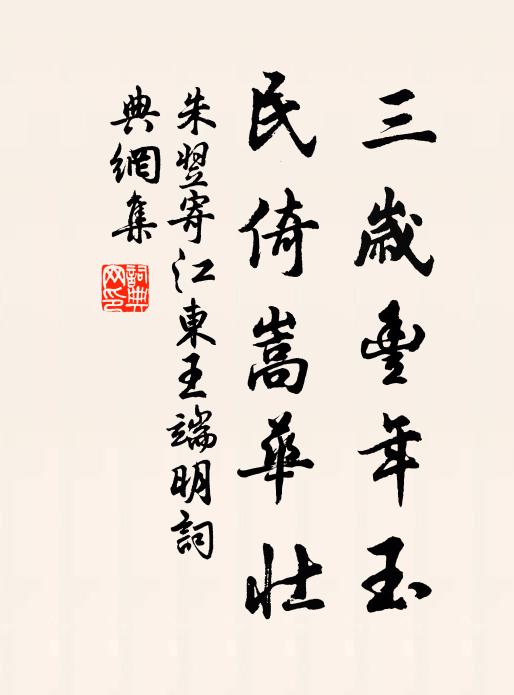 三歲豐年玉
民倚嵩華壯
朱翌寄江東王端明詞
典網集
詞典網印